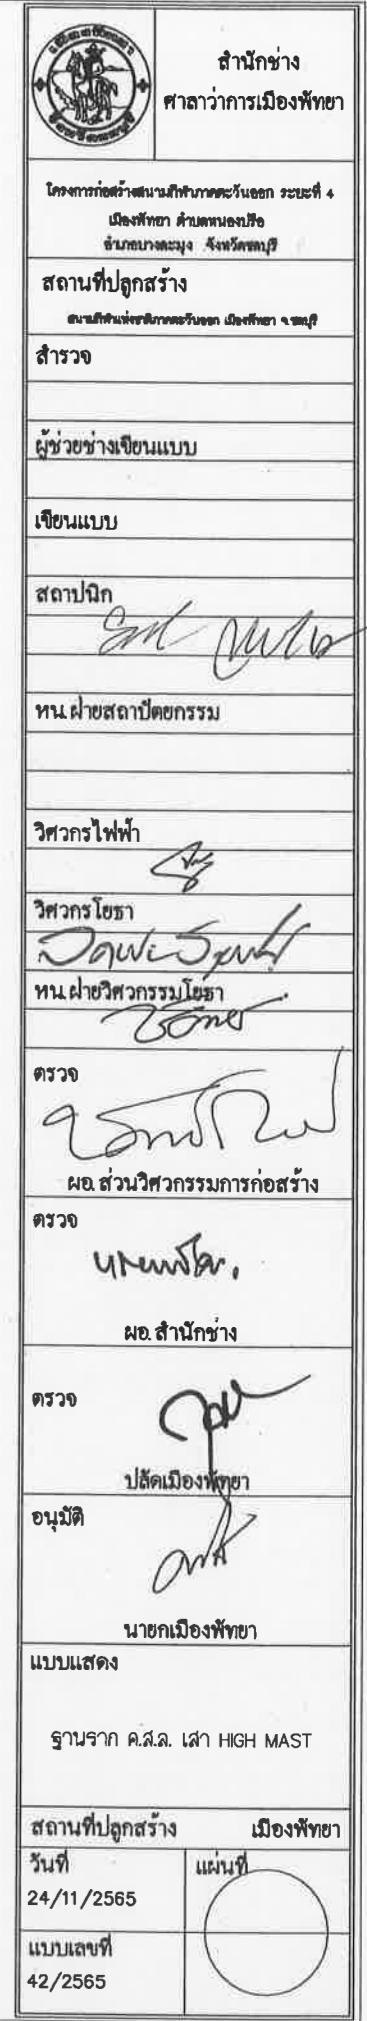 สำนักช่าง
ศาลาว่าการเมืองพัทยา
โครงการก่อสร้างสนามกีฬาภาคตะวันออก ระยะที่ 4
เมืองพัทยา ตำบลหนองปรือ
อำเภอบางละมุง จังหวัดชลบุรี
สถานที่ปลูกสร้าง
สนามกีฬาแห่งชาติภาคตะวันออก เมืองพัทยา จ.ชลบุรี
สำรวจ
ผู้ช่วยช่างเขียนแบบ
เขียนแบบ
สถาปนิก
หน.ฝ่ายสถาปัตยกรรม
วิศวกรไฟฟ้า
วิศวกรโยธา
หน.ฝ่ายวิศวกรรมโยธา
ตรวจ
ผอ.ส่วนวิศวกรรมการก่อสร้าง
ตรวจ
ผอ.สำนักช่าง
ตรวจ
ปลัดเมืองพัทยา
อนุมัติ
นายกเมืองพัทยา
แบบแสดง
ฐานราก ค.ส.ล. เสา HIGH MAST
สถานที่ปลูกสร้าง เมืองพัทยา
วันที่ แผ่นที่
24/11/2565
แบบเลขที่
42/2565